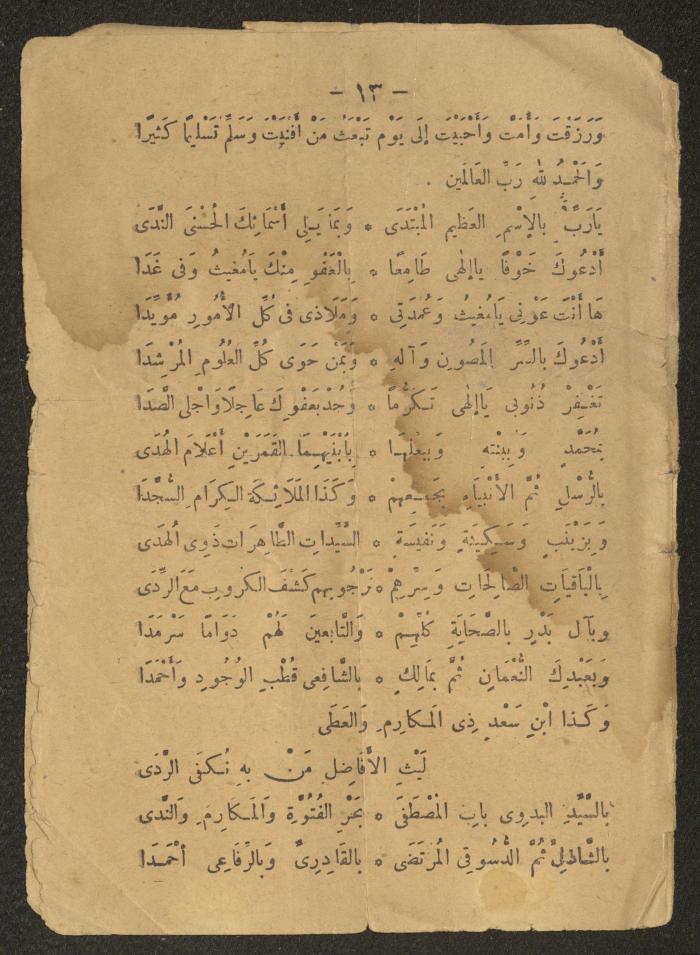 - ١٣ -
وَرَزَقْتَ وَأَمَتْ وَأَحْبَيْتَ إِلَى يَوْمِ تَبْعَثُ مَنْ أَفْنَيْتَ وَسَلِّمْ تَسْلِيمًا كَثِيرًا
وَالْحَمْدُ للهِ رَبِّ العَالَمِين .
يَارَبِّ بِالْإِسْمِ العَظِيمِ المُبْتَدَى * وَبِمَا يَلِى أَسْمَائِكَ الحُسْنَى النَّدَى
أَدْعُوكَ خَوْفًا يَاإِلٰهِى طَامِعًا * بِالْعَفْوِ مِنْكَ يَامُغِيثُ وَفِى غَدَا
هَا أَنْتَ عَوْنِى يَامُغِيثُ وَعُمْدَتِى * وَمَلَاذِى فِى كُلِّ الأُمُورِ مُؤَيِّدَا
أَدْعُوكَ بِالسِّرِّ المَصُونِ وَآلِهِ * وَبِمَنْ حَوَى كُلَّ العُلُومِ المُرْشِدَا
تَغْفِرْ ذُنُوبِى يَاإِلٰهِى تَكَرُّمًا * وَجُدْ بِعَفْوِكَ عَاجِلًا وَاجْلِى الصَّدَا
بِمُحَمَّدٍ وَبِبِنْتِهِ وَبِبَعْلِهَا * بِابْنَيْهِمَا القَمَرَيْنِ أَعْلَامِ الهُدَى
بِالرُّسْلِ ثُمَّ الأَنْبِيَاءِ جَمِيعِهِمْ * وَكَذَا المَلَائِكَةِ الكِرَامِ السُّجَّدَا
وَبِزَيْنَبٍ وَسَكِينَةٍ وَنَفِيسَةٍ * السَّيِّدَاتِ الطَّاهِرَاتِ ذَوِى الهُدَى
بِالْبَاقِيَاتِ الصَّالِحَاتِ وَسِرِّهِمْ * نَرْجُو بِهِم كَشْفَ الكُرُوبِ مَعَ الرَّدَى
وَبِآلِ بَدْرٍ بِالصَّحَابَةِ كُلِّهِمْ * وَالتَّابِعِينَ لَهُمْ دَوَامًا سَرْمَدَا
وَبِعَبْدِكَ النُّعْمَانِ ثُمَّ بِمَالِكٍ * بِالشَّافِعِى قُطْبِ الوُجُودِ وَأَحْمَدَا
وَكَذَا ابْنِ سَعْدٍ ذِى المَكَارِمِ وَالعَطَى
لَيْثِ الأَفَاضِلِ مَنْ بِهِ نُكْفَى الرَّدَى
بِالسَّيِّدِ البَدَوِى بَابِ المُصْطَفَى * بَحْرِ الفُتُوَّةِ وَالمَكَارِمِ وَالنَّدَى
بِالشَّاذِلِىِّ ثُمَّ الدُّسُوقِى المُرْتَضَى * بِالقَادِرِىِّ وَبِالرِّفَاعِى أَحْمَدَا